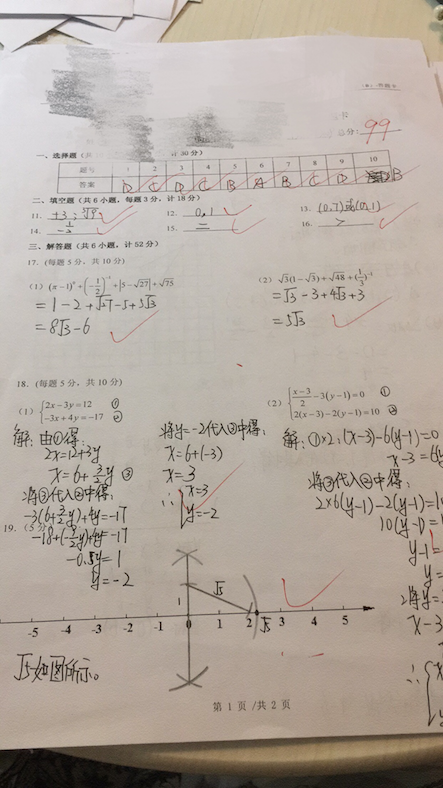 (B) 答题卡
卡
总分: 99
一、选择题（共 计 30分）
题号 1 2 3 4 5 6 7 8 9 10
答案 D C D C B A B C D B
二、填空题（共 6 小题，每题 3 分，计 18 分）
11. ±3 ; 12. 0,1 13. (0,7)或(0,1)
14. 15. 二 16. >
三、解答题（共 6 小题，计 52 分）
17.（每题 5 分，共 10 分）
(1) (π−1)⁰+(−1/2)⁻¹+|5−√27|+√75
=1−2+√27−5+5√3
=8√3−6
(2) √3(1−√3)+√48+(1/3)⁻¹
=√3−3+4√3+3
=5√3
18.（每题 5 分，共 10 分）
(1) {2x−3y=12 ①
−3x+4y=−17 ②
解: 由①得:
2x=12+3y
x=6+3/2y ③
将③代入②中得:
−3(6+3/2y)+4y=−17
−18+(−9/2y)+4y=−17
−0.5y=1
y=−2
将y=−2代入③中得:
x=6+(−3)
x=3
∴ {x=3
y=−2
(2) {(x−3)/2−3(y−1)=0 ①
2(x−3)−2(y−1)=10 ②
解: ①×2:(x−3)−6(y−1)=0
x−3=6(y
将③代入②中得:
2×6(y−1)−2(y−1)=1
10(y−1)=
y−1=
y=
将y=
x−3
∴ {x
y
19.（5 分）
√5
1
-5 -4 -3 -2 -1 0 1 2 √5 3 4 5
√5如图所示。
第 1 页 /共 2 页